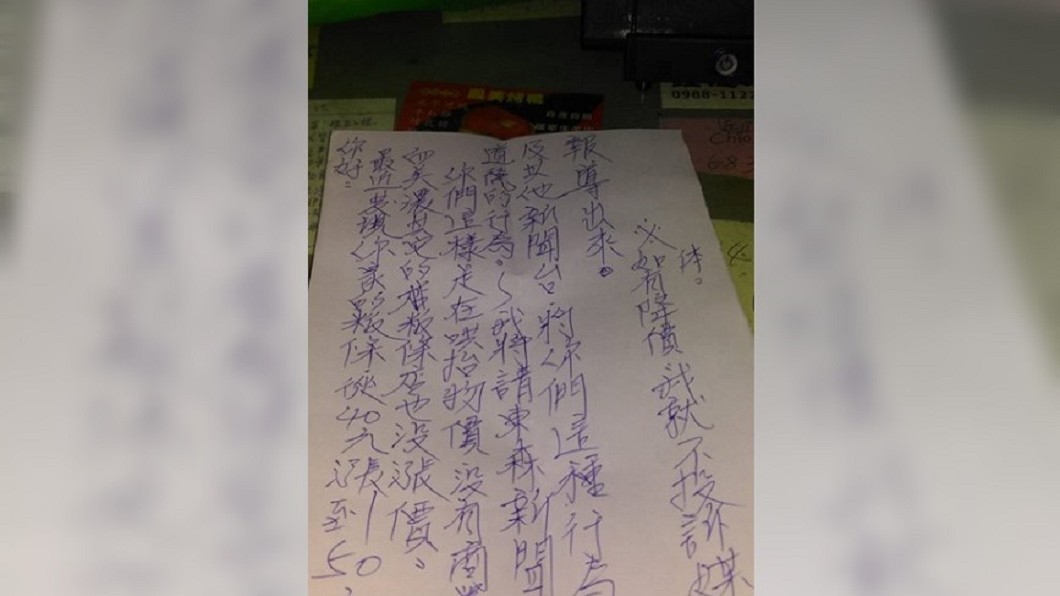 你好。
最近發現你家粄條從40元漲10至50
而美濃其它的粄條店也沒漲價。
你們這樣是在哄抬物價 沒有商
道德的行為。～我將請東森新聞
及其他新聞台.將你們這種行為
報導出來。
※如有降價 我就不投訴媒
体。
0988-1127